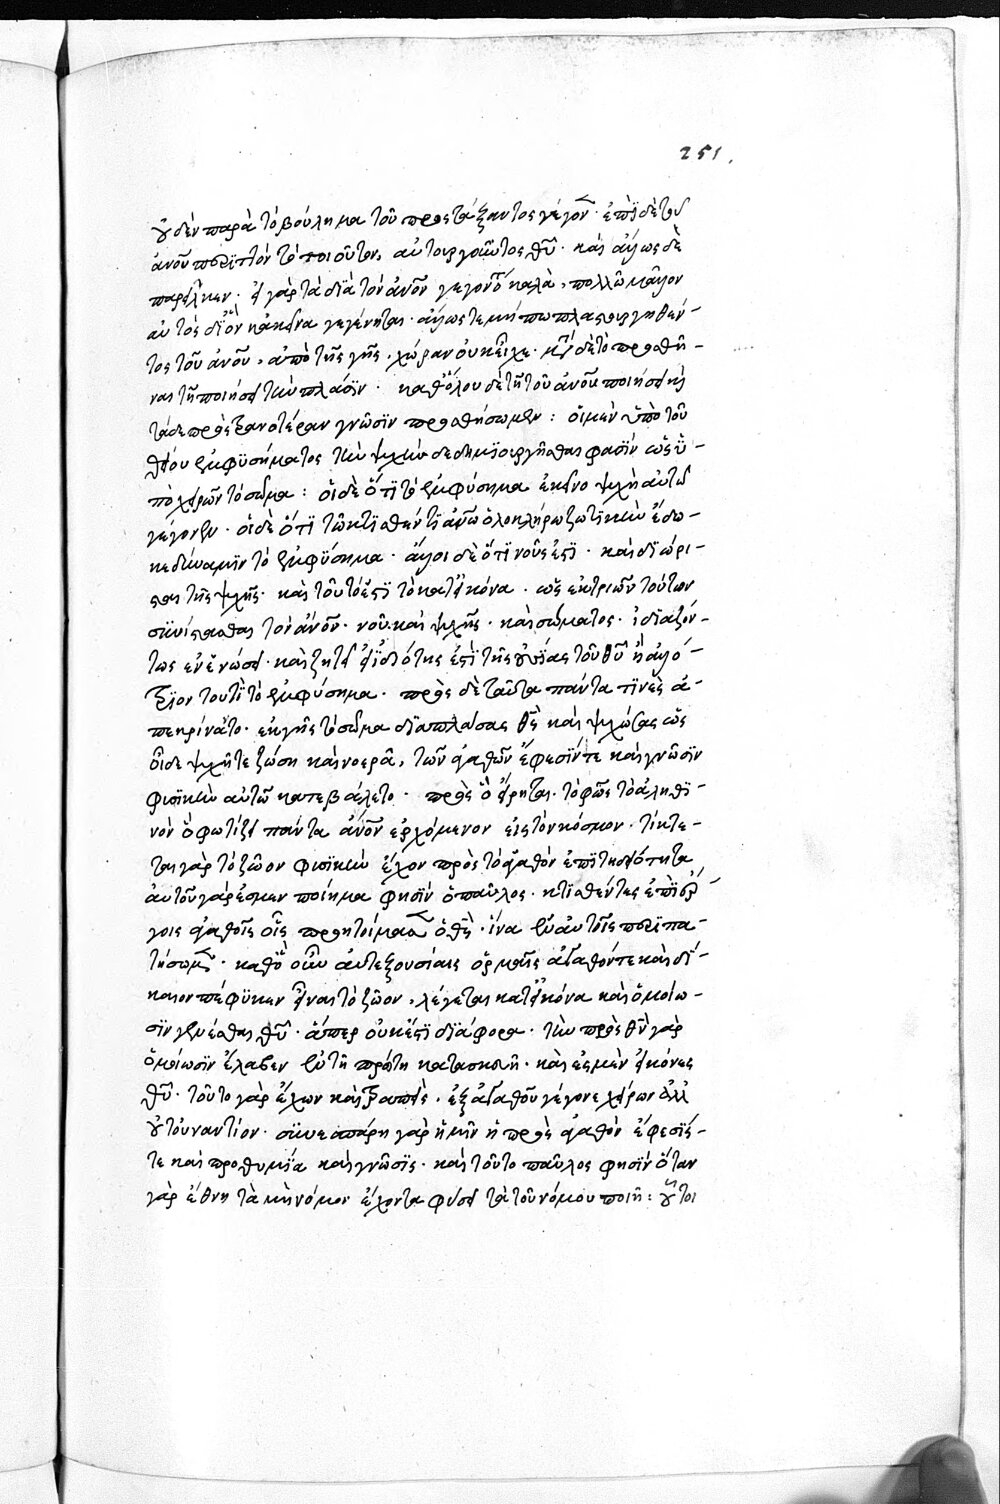 251.
οὐδὲν παρὰ τὸ βούλημα τοῦ προστάξαντος γέγονεν· ἐπὶ δὲ τοῦ
ἀνοῦ περιττὸν τὸ τοιοῦτον, αὐτουργοῦντος θῦ· καὶ ἄλλως δὲ
παρέλκεν· εἰ γὰρ τὰ διὰ τὸν ἀνον γεγονότα καλὰ, πολλῶ μᾶλλον
αὐτὸς δι' ὃν κἀκεῖνα γεγένηται· ἄλλως τε μήπω πλαστουργηθέν-
τος τοῦ ἀνοῦ, ἀπὸ τῆς γῆς, χώραν οὐκ εἶχε· δὲ τὸ προσθῆ-
ναι τῆ ποιήσει τὴν πλάσιν· καθόλου δὲ τῆ τοῦ ἀνοῦ ποιήσει καὶ
τάδε πρὸς τρανοτέραν γνῶσιν προσθήσωμεν: οἱ μὲν ὑπὸ τοῦ
θείου ἐμφυσήματος τὴν ψυχὴν δεδημιουργῆσθαι φασὶν ὡς ὑ-
πὸ χειρῶν τὸ σῶμα: οἱ δὲ ὅτι τὸ ἐμφύσημα ἐκεῖνο ψυχὴ αὐτῶ
γέγονεν· οἱ δὲ ὅτι τῶ κτισθέντι ἀνω ὁλοκλήρω ζωτικὴν ἔδω-
κε δύναμιν τὸ ἐμφύσημα· ἄλλοι δὲ ὅτι νοῦς ἐστι· καὶ διώρι-
σται τῆς ψυχῆς· καὶ τοῦτό ἐστι τὸ κατ' εἰκόνα· ὡς ἐκ τριῶν τούτων
συνίστασθαι τὸν ἀνον· νοῦ καὶ ψυχῆς· καὶ σώματος· ἰδιαζόν-
τως ἐν ἑνώσει· καὶ ζητεῖ ἐπὶ τῆς οὐσίας τοῦ θῦ ἢ ἀλλό-
τριον τουτὶ τὸ ἐμφύσημα· πρὸς δὲ ταῦτα πάντα τινὲς ἀ-
πεκρίναντο· ἐκ γῆς τὸ σῶμα διαπλάσας θς καὶ ψυχώσας ὡς
οἶδε ψυχῆ τε ζώση καὶ νοερᾶ, τῶν ἀγαθῶν ἔφεσίν τε καὶ γνῶσιν
φυσικὴν αὐτῶ κατεβάλετο· πρὸς ὃ εἴρηται· τὸ φῶς τὸ ἀληθι-
νὸν ὃ φωτίζει πάντα ἀνον ἐρχόμενον εἰς τὸν κόσμον· τίκτε-
ται γὰρ τὸ ζῶον φυσικὴν ἔχον πρὸς τὸ ἀγαθὸν ἐπιτηδειότητα
αὐτοῦ γάρ ἐσμεν ποίημα φησὶν ὁ παῦλος· κτισθέντες ἐπὶ ἔρ-
γοις ἀγαθοῖς οἷς προητοίμασεν ὁ θς· ἵνα ἐν αὐτοῖς περιπα-
τήσωμεν· καθὸ οὖν αὐτεξουσίαις ὁρμαῖς ἀγαθόν τε καὶ δί-
καιον πέφυκεν εἶναι τὸ ζῶον, λέγεται κατ' εἰκόνα καὶ ὁμοίω-
σιν γενέσθαι θῦ· ἅπερ οὐκ ἔστι διάφορα· τὴν πρὸς θν γὰρ
ὁμοίωσιν ἔλαβεν ἐν τῆ πρώτη κατασκευῆ· καὶ ἐσμὲν εἰκόνες
θῦ· τοῦτο γὰρ ἔχων καὶ τραπεὶς, ἐξ ἀγαθοῦ γέγονε χείρων ἀλλ'
οὐ τοὐναντίον· συνεσπάρη γὰρ ἡμῖν ἡ πρὸς ἀγαθὸν ἔφεσίς-
τε καὶ προθυμία καὶ γνῶσις· καὶ τοῦτο παῦλος φησὶν ὅταν
γὰρ ἔθνη τὰ μὴ νόμον ἔχοντα φύσει τὰ τοῦ νόμου ποιῆ: οὗτοι